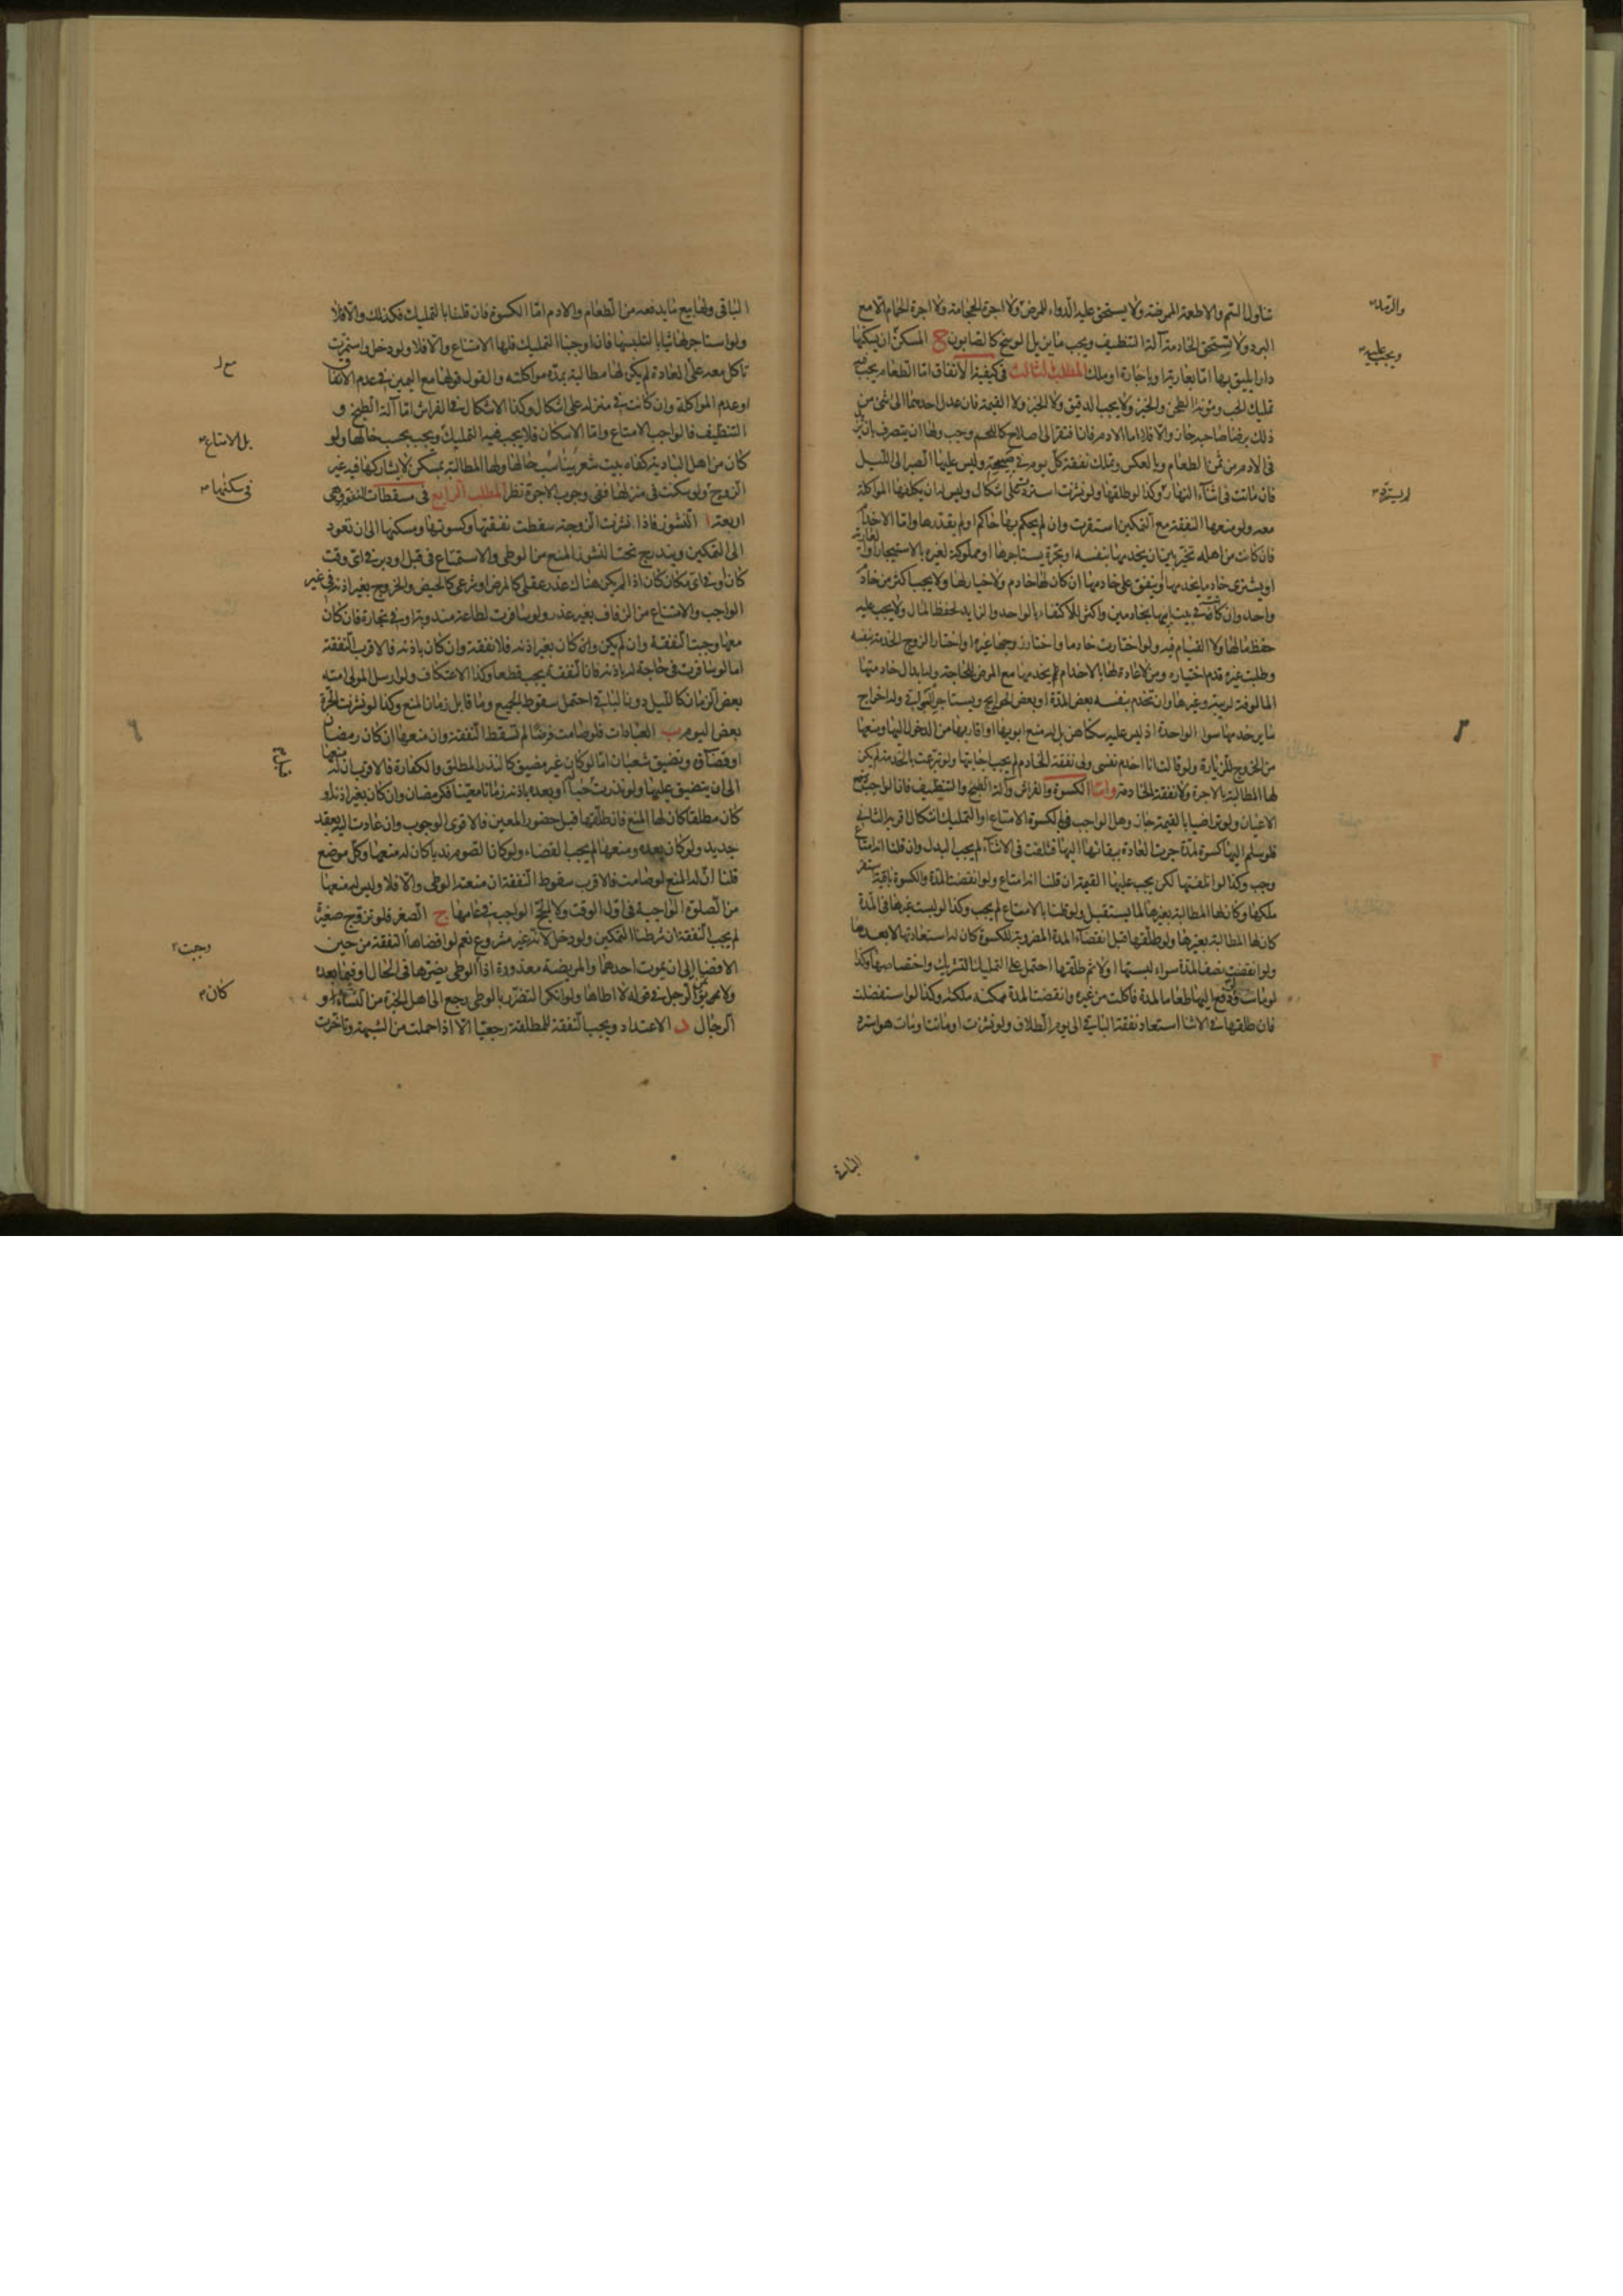 تناول السّم والاطعمة الممرضة ولا يستحق عليه الدّواء للمرض ولا اجرة الحجامة ولا اجرة الحمام الّا مع
البرد ولا تستحق الخادمة آلة التنظيف ويجب ما يزيل الوسخ كالصّابون ح المسكن ان يسكنها
دارا يليق بها امّا بعارية او باجارة او ملك المطلب الثالث فى كيفية الانفاق امّا الطّعام يجب فيه
تمليك الحب ومؤنة الطحن والخبز ولا يجب الدقيق ولا الخبز ولا القيمة فان عدل احدهما الى شئ من
ذلك برضا صاحبه جاز والّا فلا اما الادم فان افتقر الى اصلاح كاللحم وجب ولها ان يتصرف بان
فى الادم من ثمن الطعام وبالعكس وتملك نفقة كل يوم فى صبيحته وليس عليها الصبر الى الليل
فان ماتت فى اثناء النهار وكذا لو طلقها ولو نشزت استرد على اشكال وليس له ان يكلفها المواكلة
معه ولو منعها النفقة مع التمكين استقرت وان لم يحكم بها حاكم او لم يقدرها وامّا الاخدام
فان كانت من اهله تخيّر بين ان يخدمها بنفسه او بحرّة يستاجرها او مملوكة لغيره بالاستيجار او
او يشترى خادما يخدمها او ينفق على خادمها ان كان لها خادم ولا خيار لها ولا يجب اكثر من خادم
واحد وان كانت فى بيت ابيها بخادمين واكثر للاكتفاء بالواحد والزايد لحفظ المال ولا يجب عليه
حفظ مالها ولا القيام فيه ولو اختارت خادما واختار زوجها غيره او اختار الزوج الخدمة بنفسه
وطلبت غيره قدم اختياره ومن لا عادة لها بالاخدام يخدمها مع المرض للحاجة وله ابدال خادمتها
المالوفة لريبة وغيرها وان تخدم بنفسه بعض المدة او بعض الحوايج ويستاجر للبواقى وله اخراج
ساير خدمها سوى الواحدة اذ ليس عليه سكناهن بل له منع ابويها او اقاربها من الدخول اليها ومنعها
من الخروج للزيارة ولو قالت انا اخدم نفسى ولى نفقة الخادم لم يجب اجابتها ولو تبرعت بالخدمة لم يكن
لها المطالبة بالاجرة ولا نفقة الخادمة وامّا الكسوة والفراش وآلة الطبخ والتنظيف فان الواجب دفع
الاعيان ولو تراضيا بالقيمة جاز وهل الواجب فى الكسوة الامتاع او التمليك اشكال اقربه الثانى
فلو سلم اليها كسوة لمدة جرت العادة ببقائها اليها فتلفت فى الاثناء لم يجب البدل وان قلنا انه امتاع
وجب وكذا لو اتلفتها لكن يجب عليها القيمة ان قلنا انه امتاع ولو انقضت المدة والكسوة باقية استقر
ملكها وكان لها المطالبة بغيرها لما يستقبل ولو قلنا بالامتاع لم يجب وكذا لو لبست غيرها فى المدة
كان لها المطالبة بغيرها ولو طلقها قبل انقضاء المدة المضروبة للكسوة كان له استعادتها لا بعدها
ولو انقضت نصف المدة سواء لبستها او لا ثم طلقها احتمل على التمليك التشريك واختصاصها وكذا
لو مات ولو دفع اليها طعاما لمدة فاكلت من غيره وانقضت المدة ملكته وكذا لو استفضلت
فان طلقها فى الاثنا استعاد نفقة الباقى الى يوم الطلاق ولو نشزت او ماتت او مات هو استرد
والرتبلاء
ويجب عليه
لم يسترد
الباقى ولها بيع ما يدفعه من الطعام والادم امّا الكسوة فان قلنا بالتمليك فكذلك والّا فلا
ولو استاجر لها ثيابا لتلبسها فان اوجبنا التمليك فلها الامتناع والّا فلا ولو دخل واستمرت
تاكل معه على العادة لم يكن لها مطالبة بمدة مواكلته والقول قولها مع اليمين فى عدم الانفاق
او عدم المواكلة وان كانت فى منزله على اشكال وكذا الاشكال فى الفراش امّا آلة الطبخ و
التنظيف فالواجب الامتاع وامّا الاسكان فلا يجب فيه التمليك ويجب بحسب حالها ولو
كان من اهل البادية كفاه بيت شعر يناسب حالها ولها المطالبة بمسكن لا يشاركها فيه غير
الزوج ولو سكنت فى منزلها ففى وجوب الاجرة نظر المطلب الرابع فى مسقطات النفقة وهى
اربعة ا النشوز فاذا نشزت الزوجة سقطت نفقتها وكسوتها ومسكنها الى ان تعود
الى التمكين ويندرج تحت النشوز المنع من الوطى والاستمتاع فى قبل او دبر فى اى وقت
كان او فى اى مكان كان اذا لم يكن هناك عذر عقلى كالمرض او شرعى كالحيض والخروج بغير اذنه فى غير
الواجب والامتناع من الزفاف بغير عذر ولو سافرت لطاعة مندوبة او فى تجارة فان كان
معها وجبت النفقة وان لم يكن وان كان بغير اذنه فلا نفقة وان كان باذنه فالاقرب النفقة
اما لو سافرت فى حاجة له باذنه فان النفقة يجب قطعا وكذا الاعتكاف ولو ارسل المولى امته
بعض الزمان كالليل دون الباقى احتمل سقوط الجميع وما قابل زمان المنع وكذا لو نشزت الحرة
بعض اليوم ب العبادات فلو صامت فرضا لم تسقط النفقة وان منعها ان كان رمضان
او قضاؤه وتضيق شعبان امّا لو كان غير مضيق كالنذر المطلق والكفارة فالاقرب ان له منعها
الى ان يتضيق عليها ولو نذرت حبا او بعده باذنه زمانا معينا فكرمضان وان كان بغير اذنه او
كان مطلقا كان لها المنع فان طلقها قبل حضور المعين فالاقوى الوجوب وان عادت اليه بعقد
جديد ولو كان بعده ومنعها لم يجب القضاء ولو كان الصوم ندبا كان له منعها وكل موضع
قلنا ان له المنع لو صامت فالاقرب سقوط النفقة ان منعته الوطى والّا فلا وليس له منعها
من الصلوة الواجبة فى اول الوقت ولا الحج الواجب فى عامها ج الصغر فلو تزوج صغيرة
لم يجب النفقة ان شرطنا التمكين ولو دخل لانه غير مشروع نعم لو افضاها النفقة من حين
الافضا الى ان يموت احدهما والمريضة معذورة اذا الوطى يضرها فى الحال او فيما بعده
ولا يؤتمن الرجل فى قوله لا اطاها ولو انكر التضرر بالوطى رجع الى اهل الخبرة من النساء او
الرجال د الاعتداد ويجب النفقة للمطلقة رجعيا الّا اذا حملت من الشبهة وتاخرت
بل الامتاع
فى سكنيها
وجبت
كان